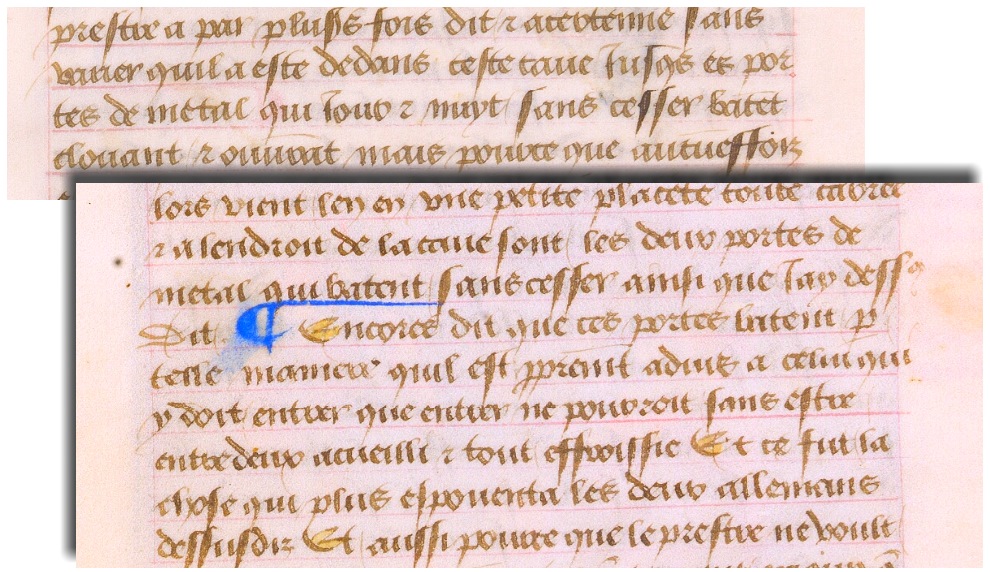 prestre a par plus's fois dit ⁊ acertenne sans
varier quil a este dedans ceste cave Jusqs es por
tes de metal qui Jour ⁊ nuyt sans cesser batēt
clouant ⁊ ouurāt mais pource que autueffoiz
lors vient len en vne petite placete toute cauee
⁊ a lendroit de la caue sont les deux portes de
metal qui batent sans cesser ainsi que Jay dess
dit ¶ Encores dit que ces portes batent p
telle maniere quil est ppremt aduis a celui qui
y doit entrer que entrer ne pourroit sans estre
entredeux acueilli ⁊ tout effroissie Et ce fut la
chose qui plus espouenta les deux allemans
dessusdiz Et aussi pource que le prestre ne voult